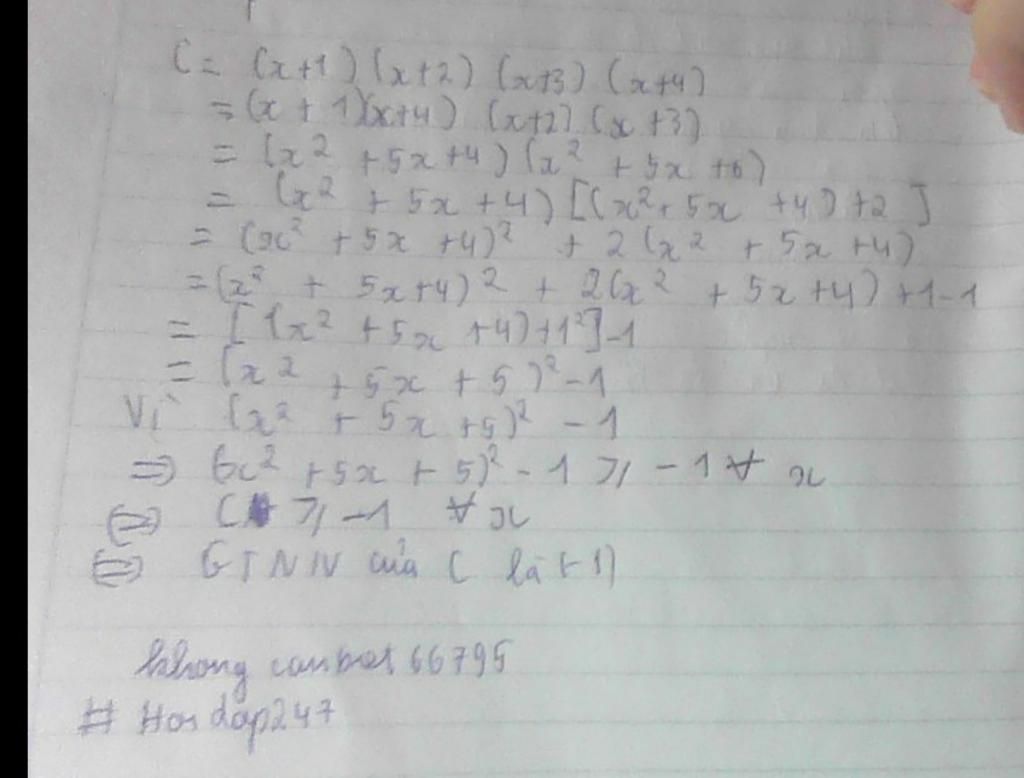 C = (x+1)(x+2)(x+3)(x+4)
= (x + 1)(x+4) (x+2)(x+3)
= (x² + 5x+4)(x² + 5x +6)
= (x² + 5x +4)[(x²+5x +4)+2]
= (x² + 5x +4)² + 2(x² + 5x +4)
= (x² + 5x+4)² + 2(x² + 5x+4) +1-1
= [(x² +5x +4)+1²]-1
= (x² + 5x + 5)² -1
Vì (x² + 5x +5)² - 1
=> (x² +5x + 5)² - 1 ≥ -1 ∀ x
<=> C ≥ -1 ∀ x
<=> GTNN của C là (-1)
khong canbiet 66795
# Hoi dap247